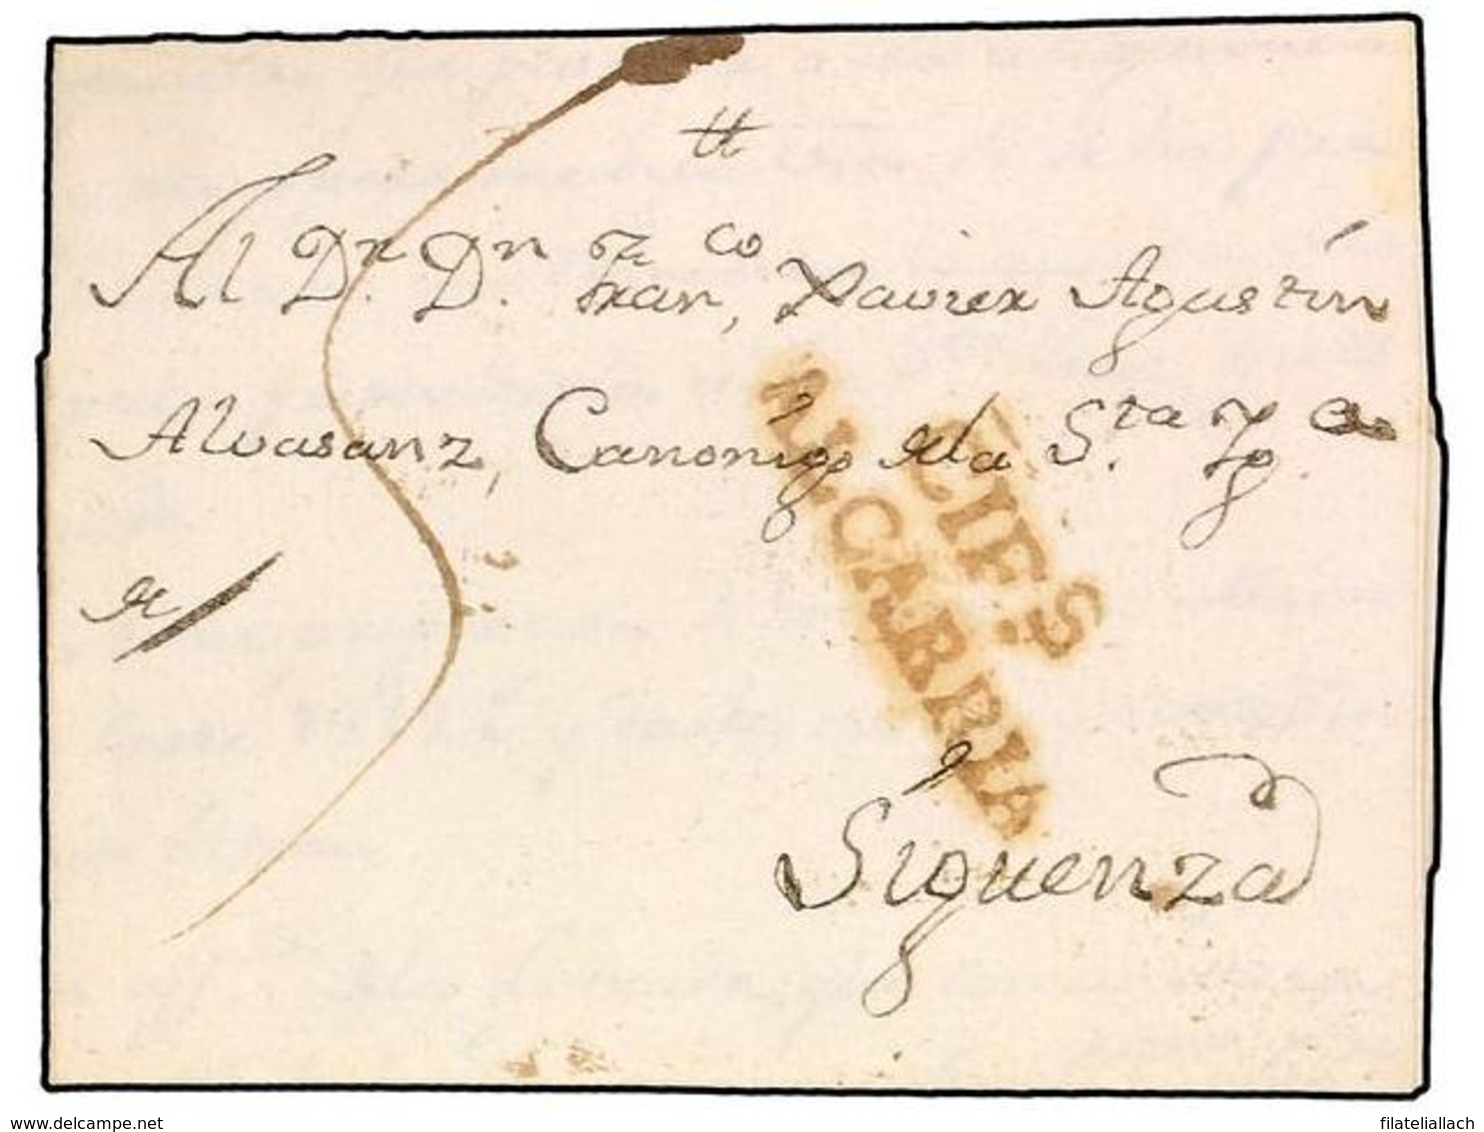 Al D.r D.n Fran.co Xavier Agustin
Alvasanz, Canonigo dela S.ta Yg.a
de
CIF.S
ALCARRIA
Siguenza
www.delcampe.net
filateliallach